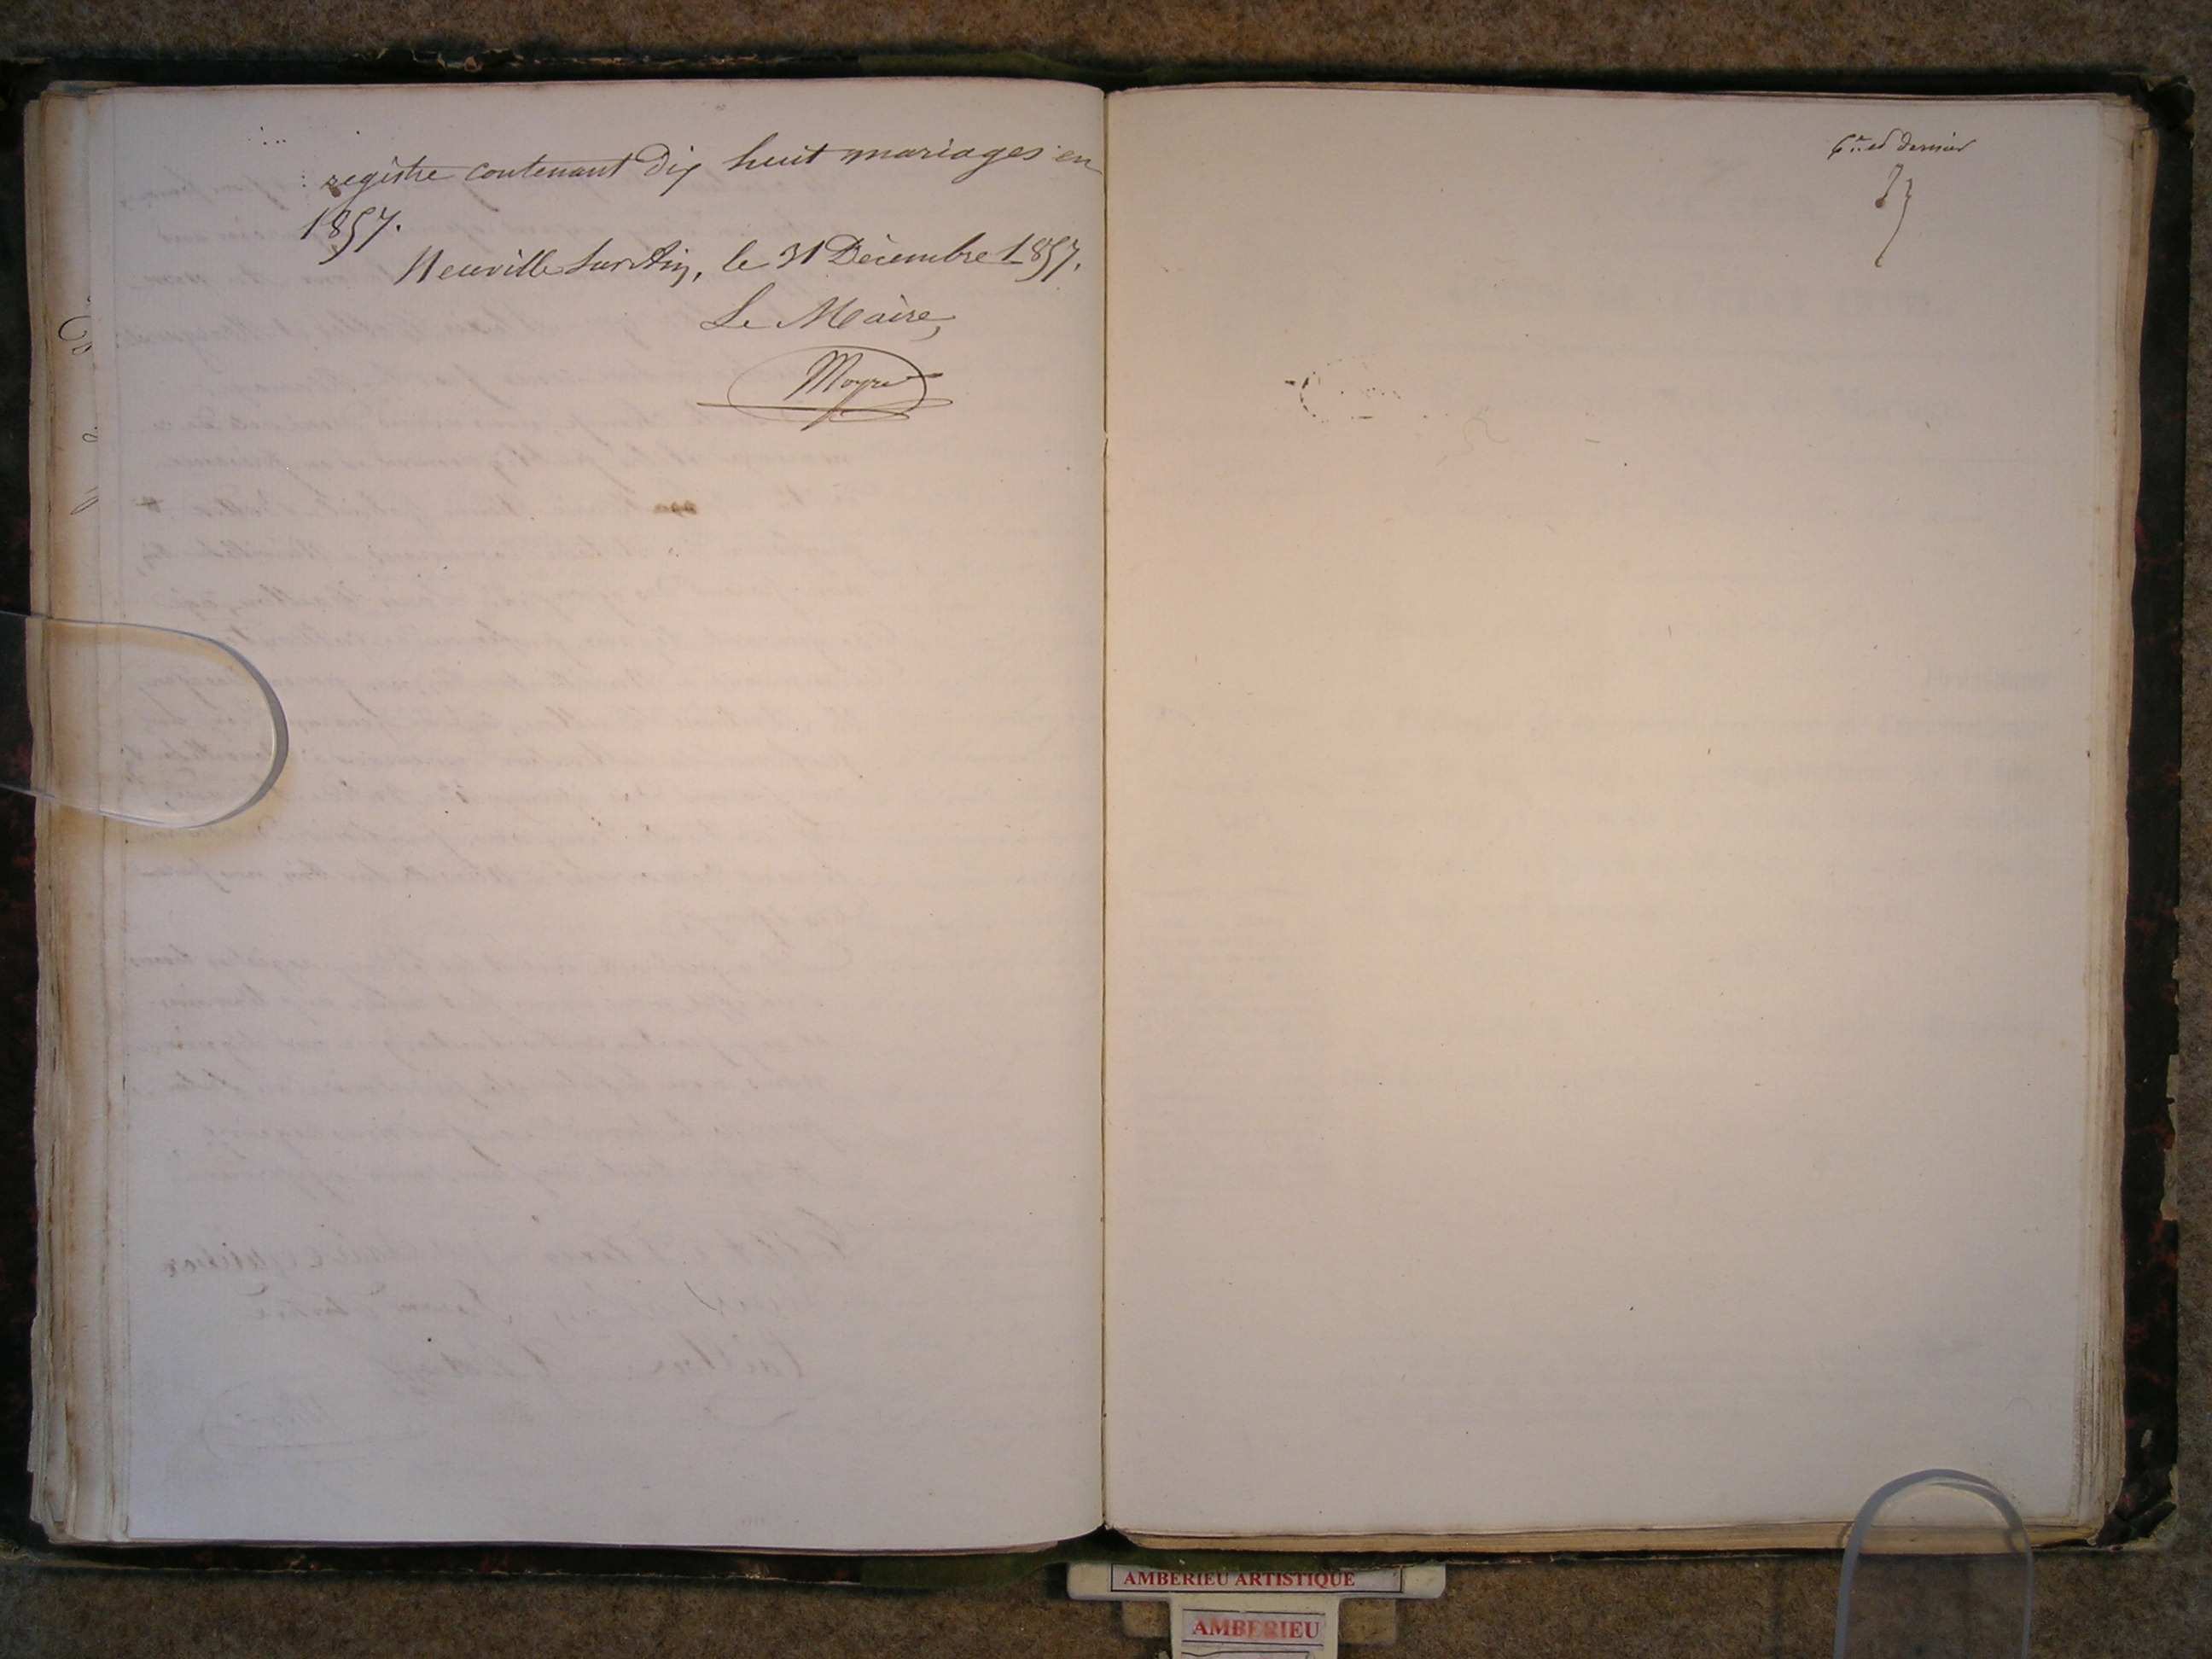 registre contenant dix huit mariages en
1857.
Neuville sur Ain, le 31 Décembre 1857.
Le Maire,
et dernier
AMBERIEU ARTISTIQUE
AMBERIEU